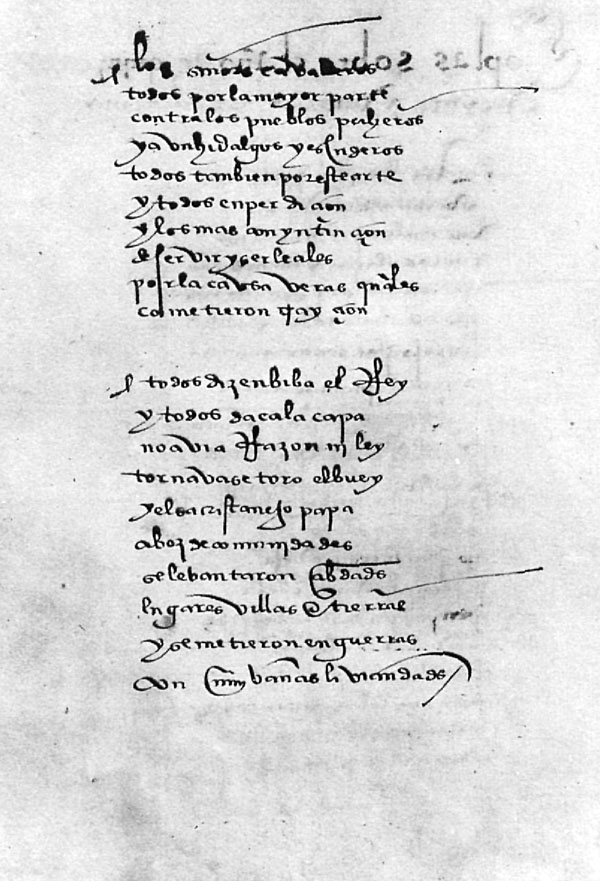 los señores cavalleros
todos por la mayor parte
contra los pueblos pecheros
y avn hidalgos y escuderos
todos tambien por este arte
y todos en perdiçion
y los mas con yntinçion
de servir y ser leales
por la cavsa veras quales
cometieron trayçion
todos dizen biba el Rey
y todos daca la capa
no avia Razon ni ley
tornavase toro el buey
y el sacristanejo papa
a boz de comunidades
se lebantaron çibdades
lugares villas e tierras
y se metieron en guerras
con muy vanas liviandades